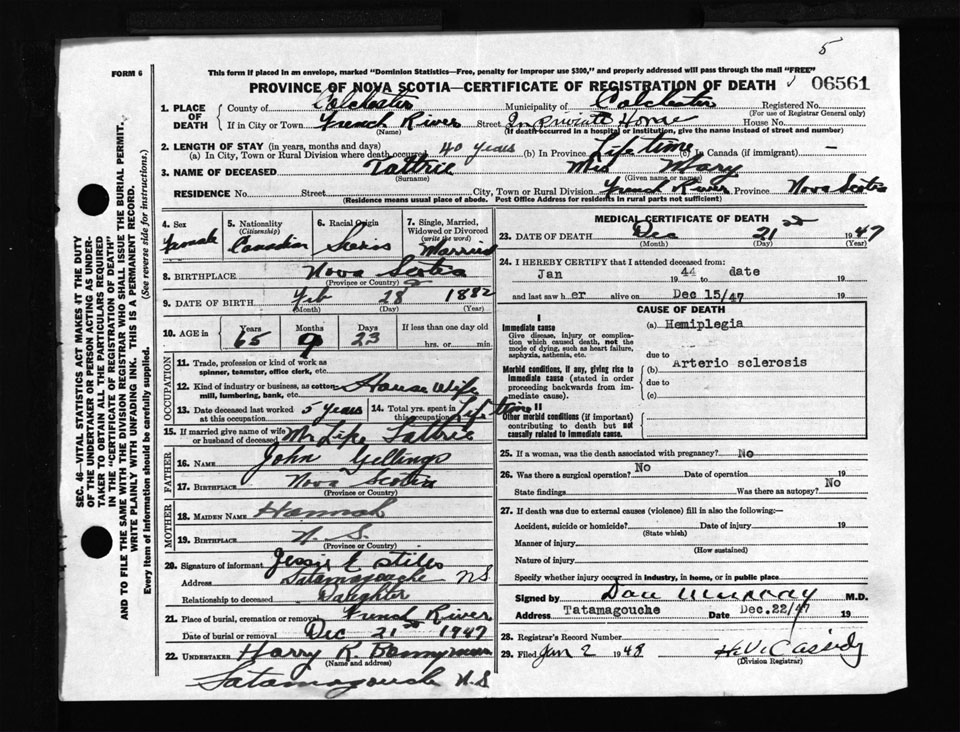 5
FORM 6
This form if placed in an envelope, marked "Dominion Statistics—Free, penalty for improper use $300," and properly addressed will pass through the mail "FREE"
PROVINCE OF NOVA SCOTIA—CERTIFICATE OF REGISTRATION OF DEATH 06561
1. PLACE OF DEATH County of Colchester Municipality of Colchester Registered No.
(For use of Registrar General only)
If in City or Town French River Street In private House House No.
(Name) (If death occurred in a hospital or institution, give the name instead of street and number)
2. LENGTH OF STAY (in years, months and days)
(a) In City, Town or Rural Division where death occurred 40 years (b) In Province Life time (c) In Canada (if immigrant) —
3. NAME OF DECEASED Tattrie Mrs Mary
(Surname) (Given name or names)
RESIDENCE No. Street City, Town or Rural Division French River Province Nova Scotia
(Residence means usual place of abode. Post Office Address for residents in rural parts not sufficient)
4. Sex Female
5. Nationality (Citizenship) Canadian
6. Racial Origin
7. Single, Married, Widowed or Divorced (write the word) Married
8. BIRTHPLACE Nova Scotia
(Province or Country)
9. DATE OF BIRTH Feb 28 1882
(Month) (Day) (Year)
10. AGE in Years Months Days If less than one day old
65 9 23 hrs. or min.
OCCUPATION
11. Trade, profession or kind of work as spinner, teamster, office clerk, etc.
12. Kind of industry or business, as cotton-mill, lumbering, bank, etc. House Wife
13. Date deceased last worked at this occupation 5 years
14. Total yrs. spent in this occupation Life time
15. If married give name of wife or husband of deceased Mr Tattrie
FATHER
16. NAME John
17. BIRTHPLACE Nova Scotia
(Province or Country)
MOTHER
18. MAIDEN NAME Hannah
19. BIRTHPLACE N. S.
(Province or Country)
20. Signature of informant Jessie Stiles
Address Tatamagouche NS
Relationship to deceased Daughter
21. Place of burial, cremation or removal French River
Date of burial or removal Dec 21st 1947
22. UNDERTAKER Harry R. Bannyman
(Name and address)
Tatamagouche N.S
MEDICAL CERTIFICATE OF DEATH
23. DATE OF DEATH Dec 21st 1947
(Month) (Day) (Year)
24. I HEREBY CERTIFY that I attended deceased from:
Jan 1944 to date 19
and last saw her alive on Dec 15/47 19
CAUSE OF DEATH
I
Immediate cause
Give disease, injury or complication which caused death, not the mode of dying, such as heart failure, asphyxia, asthenia, etc.
(a) Hemiplegia
due to
Morbid conditions, if any, giving rise to immediate cause (stated in order proceeding backwards from immediate cause).
(b) Arterio sclerosis
due to
(c)
II
Other morbid conditions (if important) contributing to death but not causally related to immediate cause.
25. If a woman, was the death associated with pregnancy? No
26. Was there a surgical operation? No Date of operation 19
State findings Was there an autopsy? No
27. If death was due to external causes (violence) fill in also the following:—
Accident, suicide or homicide? Date of injury 19
(State which)
Manner of injury
(How sustained)
Nature of injury
Specify whether injury occurred in industry, in home, or in public place
Signed by Dan Murray M.D.
Address Tatamagouche Date Dec.22/47 19
28. Registrar's Record Number
29. Filed Jan 2 1948 Cassidy
(Division Registrar)
SEC. 46—VITAL STATISTICS ACT MAKES IT THE DUTY
OF THE UNDERTAKER OR PERSON ACTING AS UNDER-
TAKER TO OBTAIN ALL THE PARTICULARS REQUIRED
IN THE "CERTIFICATE OF REGISTRATION OF DEATH"
AND TO FILE THE SAME WITH THE DIVISION REGISTRAR WHO SHALL ISSUE THE BURIAL PERMIT.
WRITE PLAINLY WITH UNFADING INK. THIS IS A PERMANENT RECORD.
Every item of information should be carefully supplied. (See reverse side for instructions.)